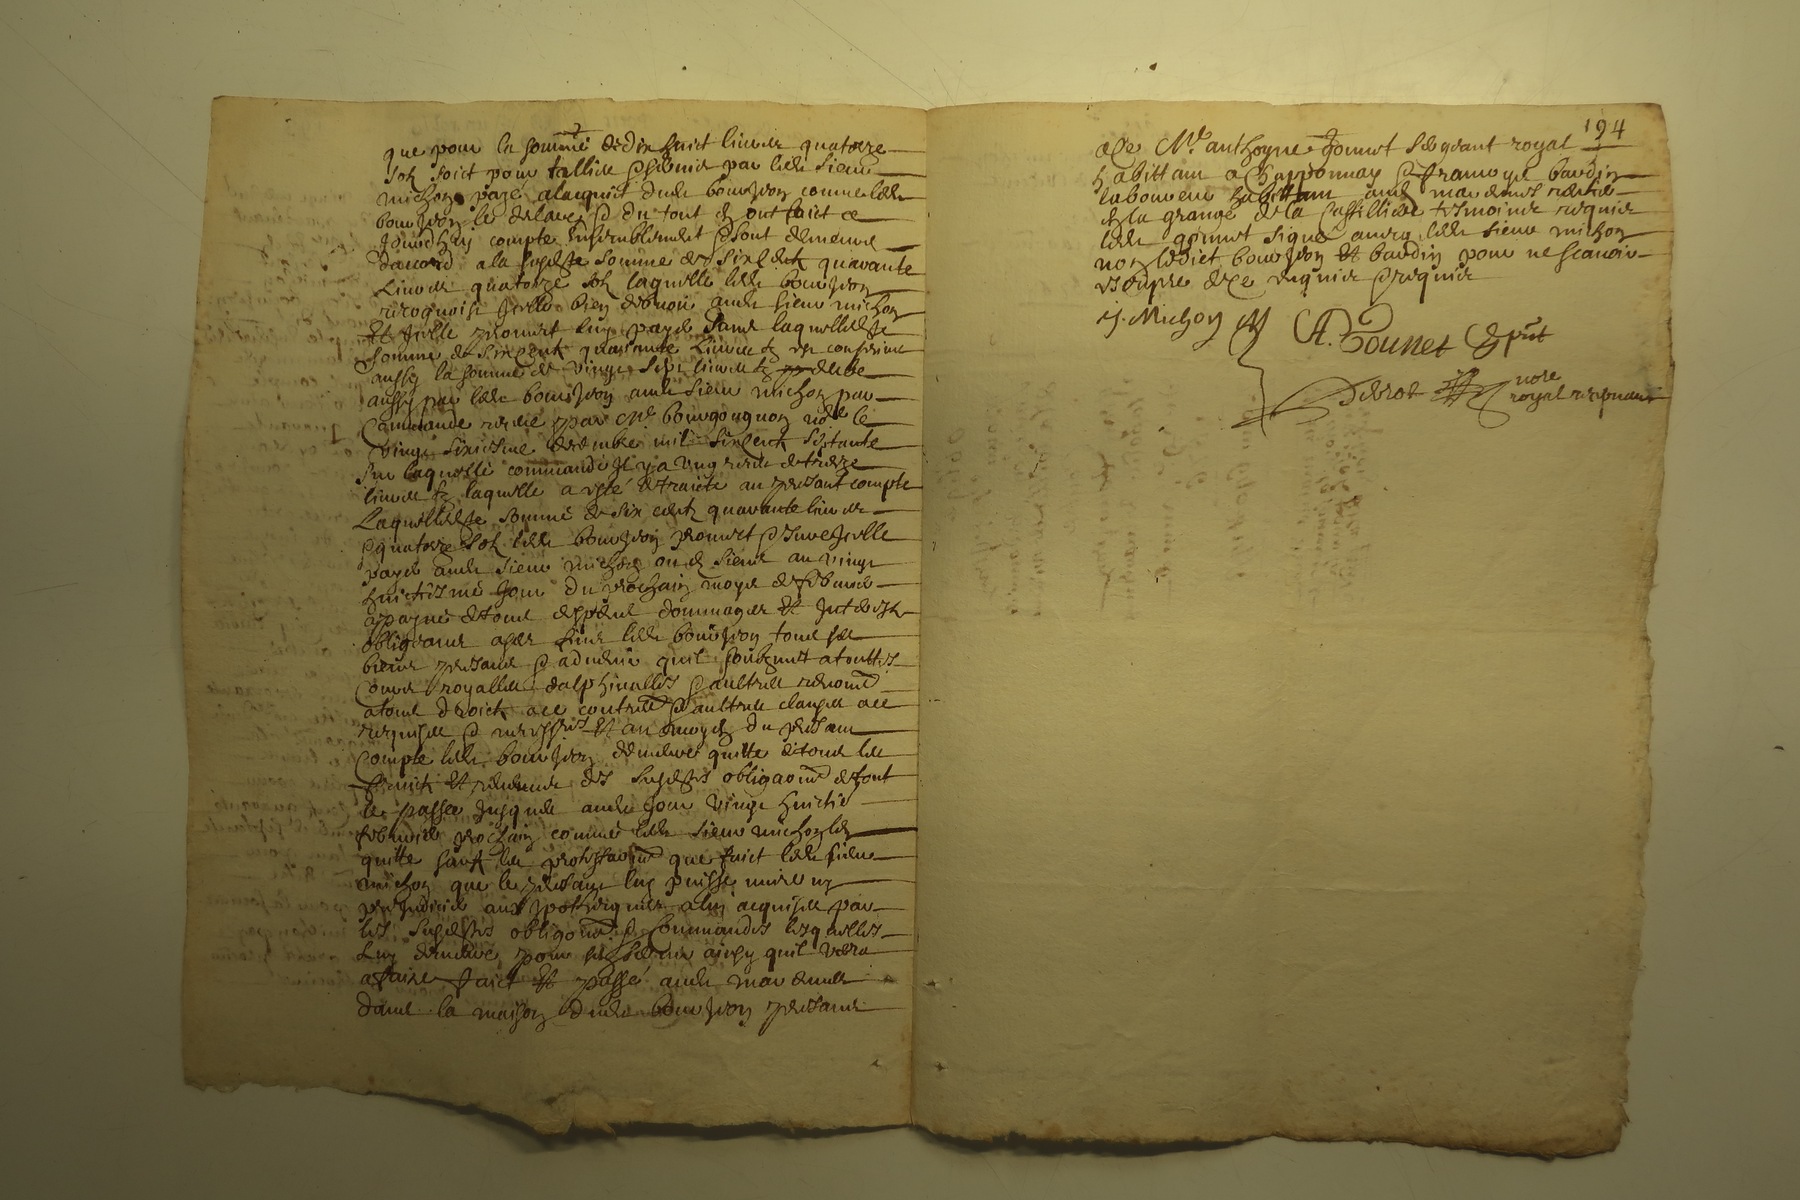 que pour la somme de dix huict livres quatorze
solz soict pour tallies & payé par ledit sieur
michon payé a lacquit dudit bourjon comme ledit
bourjon le declare & du tout en ont faict ce
jourdhuy compte ensemblement & sont demeurés
daccord a la susdte somme de six centz quarante
livres quatorze solz laquelle ledit bourjon
recognoist icelle bien debvoir audit sieur michon
et icelle promet luy payer dans laquelledte
somme de six centz quarante livres tz est comprins
aussy la somme de vingt sept livres tz deube
aussy par ledit bourjon audit sieur michon par
commande receue par Me bourgougnon nore le
vingt sixiesme decembre mil six centz septante
sur laquelle commande il y a ung receu de treize
livres tz laquelle a esté detraicte au present compte
laquelledte somme de six centz quarante livres
& quatorze solz ledit bourjon promet & jure icelle
payer audit sieur michon ou es siens au vingt
huictiesme jour du prochain moys de febvrier
a payne de tous despens dommages et interestz
obligeant a ces fins ledit bourjon tous ses
biens presans & advenir quil soubzmet a toutes
cours royalles dalphinalles & aultres renoncé
a tous droictz a ce contraires & aultres clauses a ce
requises & necessres et au moyen du presant
compte ledit bourjon demeure quitte de tous les
fruictz et revenus des susdtes obligaons de tout
le passé jusques audit jour vingt huictie
febvrier prochain comme ledit sieur michon len
quitte sauf les protestaons que faict ledit sieur
michon que le presant luy puisse nuire ny
prejudicier aux ypotheques a luy acquises par
les susdtes obligaons & commandes lesquelles
luy demeure pour sen servir ainsy quil verra
a faire faict et passé audit marennes
dans la maison dudit bourjon presans
194
a ce Me anthoyne gonnet sergeant royal
habittant a chapponnay & françoys baudin
laboureur habittant audit marennes
en la grange de la tesmoins requis
ledit gonnet signé avecq ledit sieur michon
non lediet bourjon et baudin pour ne scavoir
escripre de ce enquis & requis
J. Michon
A. Gonnet pnt
nore
royal recepvant